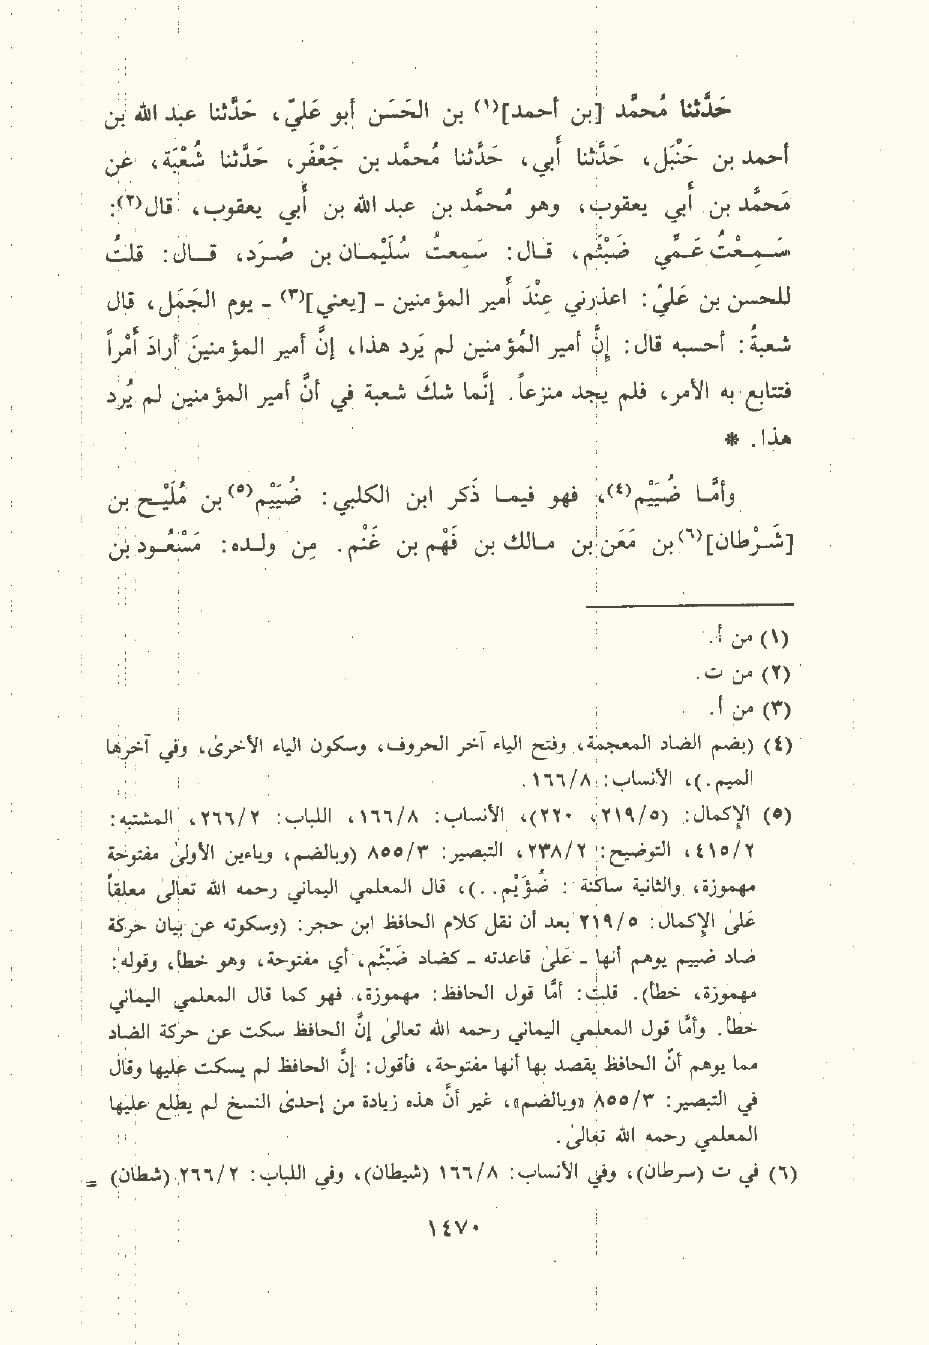 حَدَّثنا مُحمَّد [بن أحمد]⁽¹⁾ بن الحَسَن أبو عَليّ، حَدَّثنا عبد الله بن
أحمد بن حَنْبَل، حَدَّثنا أَبي، حَدَّثنا مُحمَّد بن جَعْفَر، حَدَّثنا شُعْبَة، عن
مَحمَّد بن أَبي يعقوب، وهو مُحمَّد بن عبد الله بن أَبي يعقوب، قال⁽٢⁾:
سَـمِـعْتُ عَـمِّي ضَبْثَم، قـال: سَـمعتُ سُلَيْمـان بن صُـرَد، قــال: قلتُ
للحسن بن عَليّ: اعذرني عِنْدَ أَمير المؤمنين - [يعني]⁽٣⁾ - يوم الجَمَل، قال
شعبةُ: أحسبه قال: إنَّ أمير المؤمنين لم يَرد هذا، إنَّ أمير المؤمنينَ أرادَ أَمْراً
فتتابع به الأمر، فلم يجد منزعاً. إنَّما شكَّ شعبة في أنَّ أمير المؤمنين لم يُرد
هذا. *
وأمَّـا ضُيَيْم⁽٤⁾، فهو فيمـا ذَكر ابن الكلبي: ضُيَيْم⁽٥⁾ بن مُلَيْـح بن
[شَـرْطان]⁽٦⁾ بن مَعَن بن مـالك بن فَهْم بن غَنْم. مِن ولـده: مَسْعُـود بن
(١) من أ.
(٢) من ت.
(٣) من أ.
(٤) (بضم الضاد المعجمة، وفتح الياء آخر الحروف، وسكون الياء الأخرى، وفي آخرها
الميم.)، الأنساب: ١٦٦/٨.
(٥) الإكمال: (٢١٩/٥، ٢٢٠)، الأنساب: ١٦٦/٨، اللباب: ٢٦٦/٢، المشتبه:
٤١٥/٢، التوضيح: ٢٣٨/٢، التبصير: ٨٥٥/٣ (وبالضم، وياءين الأولى مفتوحة
مهموزة، والثانية ساكنة: ضُؤَيْم..)، قال المعلمي اليماني رحمه الله تعالى معلقاً
عَلىٰ الإكمال: ٢١٩/٥ بعد أن نقل كلام الحافظ ابن حجر: (وسكوته عن بيان حركة
ضاد ضييم يوهم أنها - عَلىٰ قاعدته - كضاد ضَبْثَم، أي مفتوحة، وهو خطأ، وقوله:
مهموزة، خطأ). قلت: أمَّا قول الحافظ: مهموزة، فهو كما قال المعلمي اليماني
خطأ. وأمَّا قول المعلمي اليماني رحمه الله تعالىٰ إنَّ الحافظ سكت عن حركة الضاد
مما يوهم أنَّ الحافظ يقصد بها أنها مفتوحة، فأقول: إنَّ الحافظ لم يسكت عليها وقال
في التبصير: ٨٥٥/٣ «وبالضم»، غير أنَّ هذه زيادة من إحدى النسخ لم يطلع عليها
المعلمي رحمه الله تعالىٰ.
(٦) في ت (سرطان)، وفي الأنساب: ١٦٦/٨ (شيطان)، وفي اللباب: ٢٦٦/٢ (شطان) =
١٤٧٠